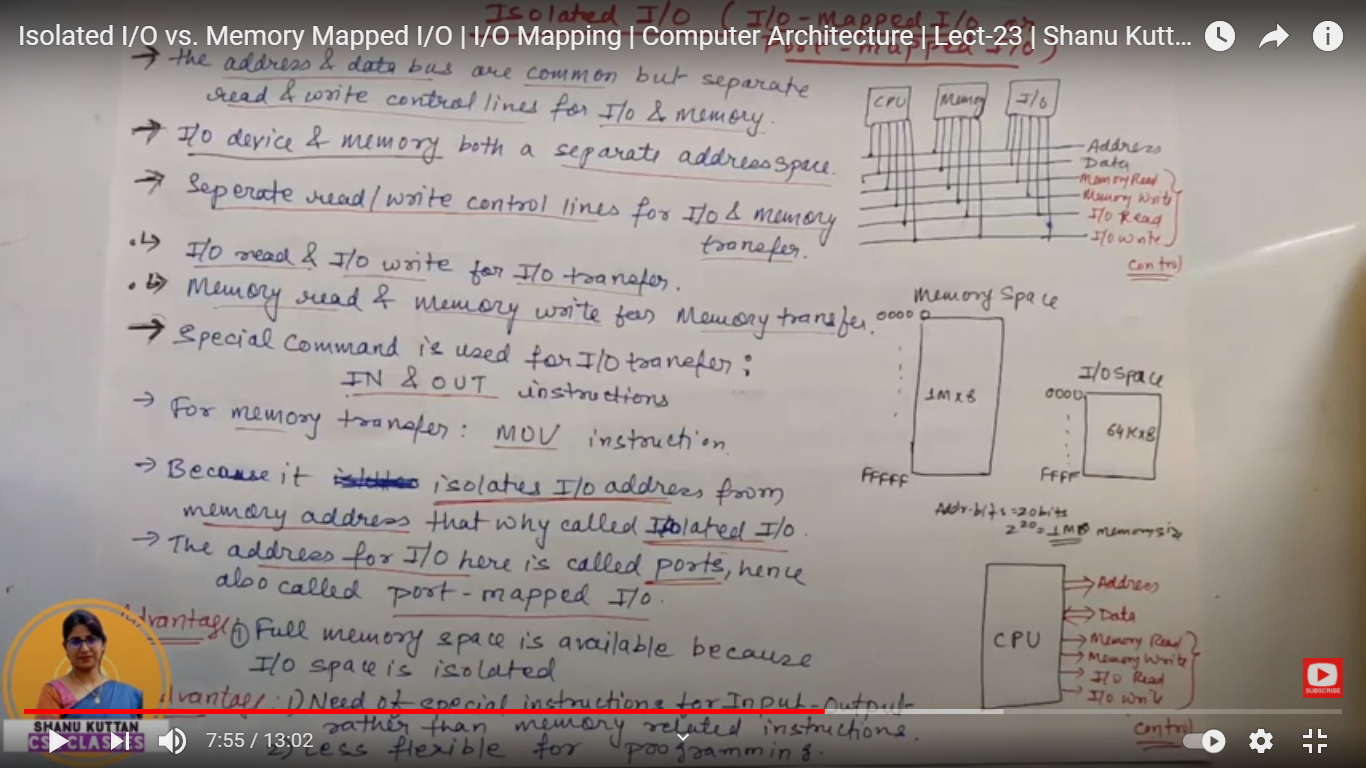 Isolated I/O (I/O-mapped I/O or
Isolated I/O vs. Memory Mapped I/O | I/O Mapping | Computer Architecture | Lect-23 | Shanu Kutt...
Port-mapped I/O)
→ the address & data bus are common but separate
read & write control lines for I/o & memory.
→ I/o device & memory both a separate address space.
→ Seperate read/write control lines for I/o & memory
transfer.
I/O read & I/O write for I/o transfer.
Memory read & memory write for Memory transfer.
→ Special Command is used for I/O transfer:
IN & OUT instructions
→ For memory transfer: MOV instruction.
→ Because it isolates I/o address from
memory address that why called Isolated I/o.
→ The address for I/O here is called ports, hence
also called port-mapped I/o.
Advantage: ① Full memory space is available because
I/O space is isolated
dvantage: 1) Need of special instructions for Input-Output
rather than memory related instructions.
2) Less flexible for programming.
CPU Memory I/o
Address
Data
Memory Read
Memory Write
I/O Read
I/o Write
Control
Memory Space
00000
1M x 8
FFFFF
I/O Space
0000
64K x 8
FFFF
Addr. bits = 20 bits
2²⁰ = 1MB memory siz
CPU
Address
Data
Memory Read
Memory Write
I/O Read
I/o Write
Control
SUBSCRIBE
SHANU KUTTAN
CSE CLASSES
7:55 / 13:02